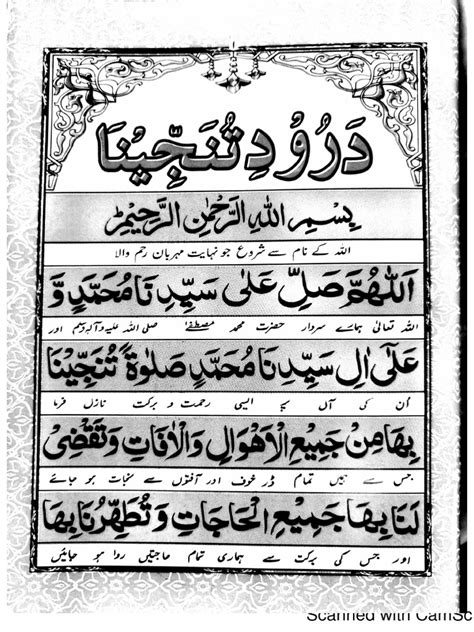 دَرُوْدِ تُنَجِّيْنَا
بِسْمِ اللهِ الرَّحْمٰنِ الرَّحِيْمِ
اللہ کے نام سے شروع جو نہایت مہربان رحم والا
اَللّٰهُمَّ صَلِّ عَلٰى سَيِّدِنَا مُحَمَّدٍ وَّ
اللہ تعالیٰ ہمارے سردار حضرت محمد مصطفےٰ صلی اللہ علیہ وآلہ وسلم اور
عَلٰى اٰلِ سَيِّدِنَا مُحَمَّدٍ صَلٰوةً تُنَجِّيْنَا
اُن کی آل کا ایسی رحمت و برکت نازل فرما
بِهَا مِنْ جَمِيْعِ الْاَهْوَالِ وَالْاٰفَاتِ وَتَقْضِىْ
جس سے ہمیں تمام ڈر خوف اور آفتوں سے نجات ہو جائے
لَنَا بِهَا جَمِيْعَ الْحَاجَاتِ وَتُطَهِّرُنَا بِهَا
اور جس کی برکت سے ہماری تمام حاجتیں روا ہو جائیں
Scanned with CamSc